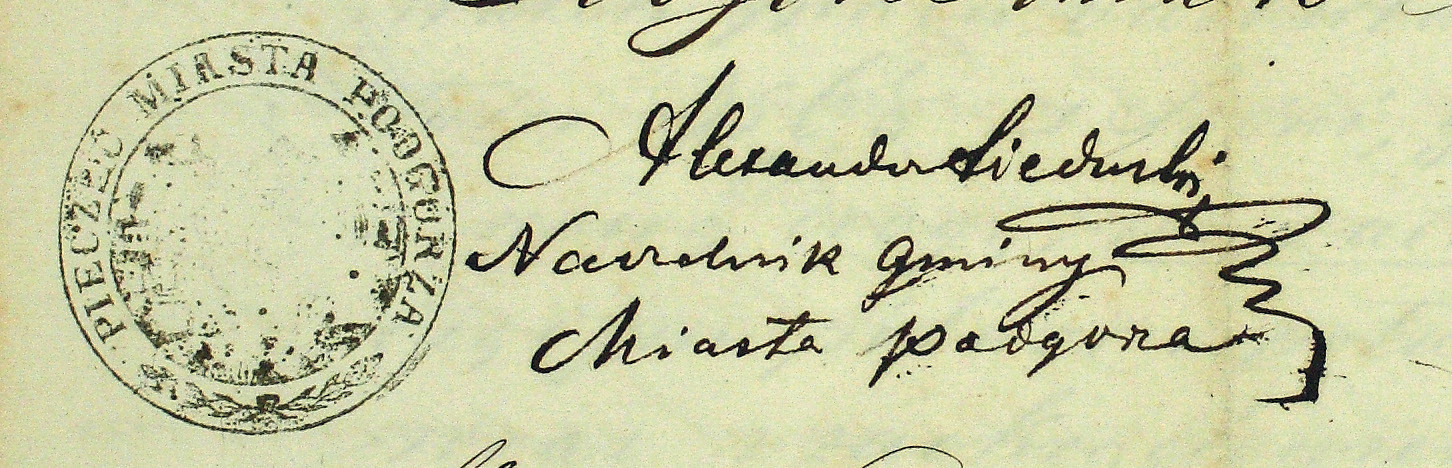 PIECZĘĆ MIASTA PODGÓRZA
Alexander Siedmski
Naczelnik gminy
Miasta podgorza